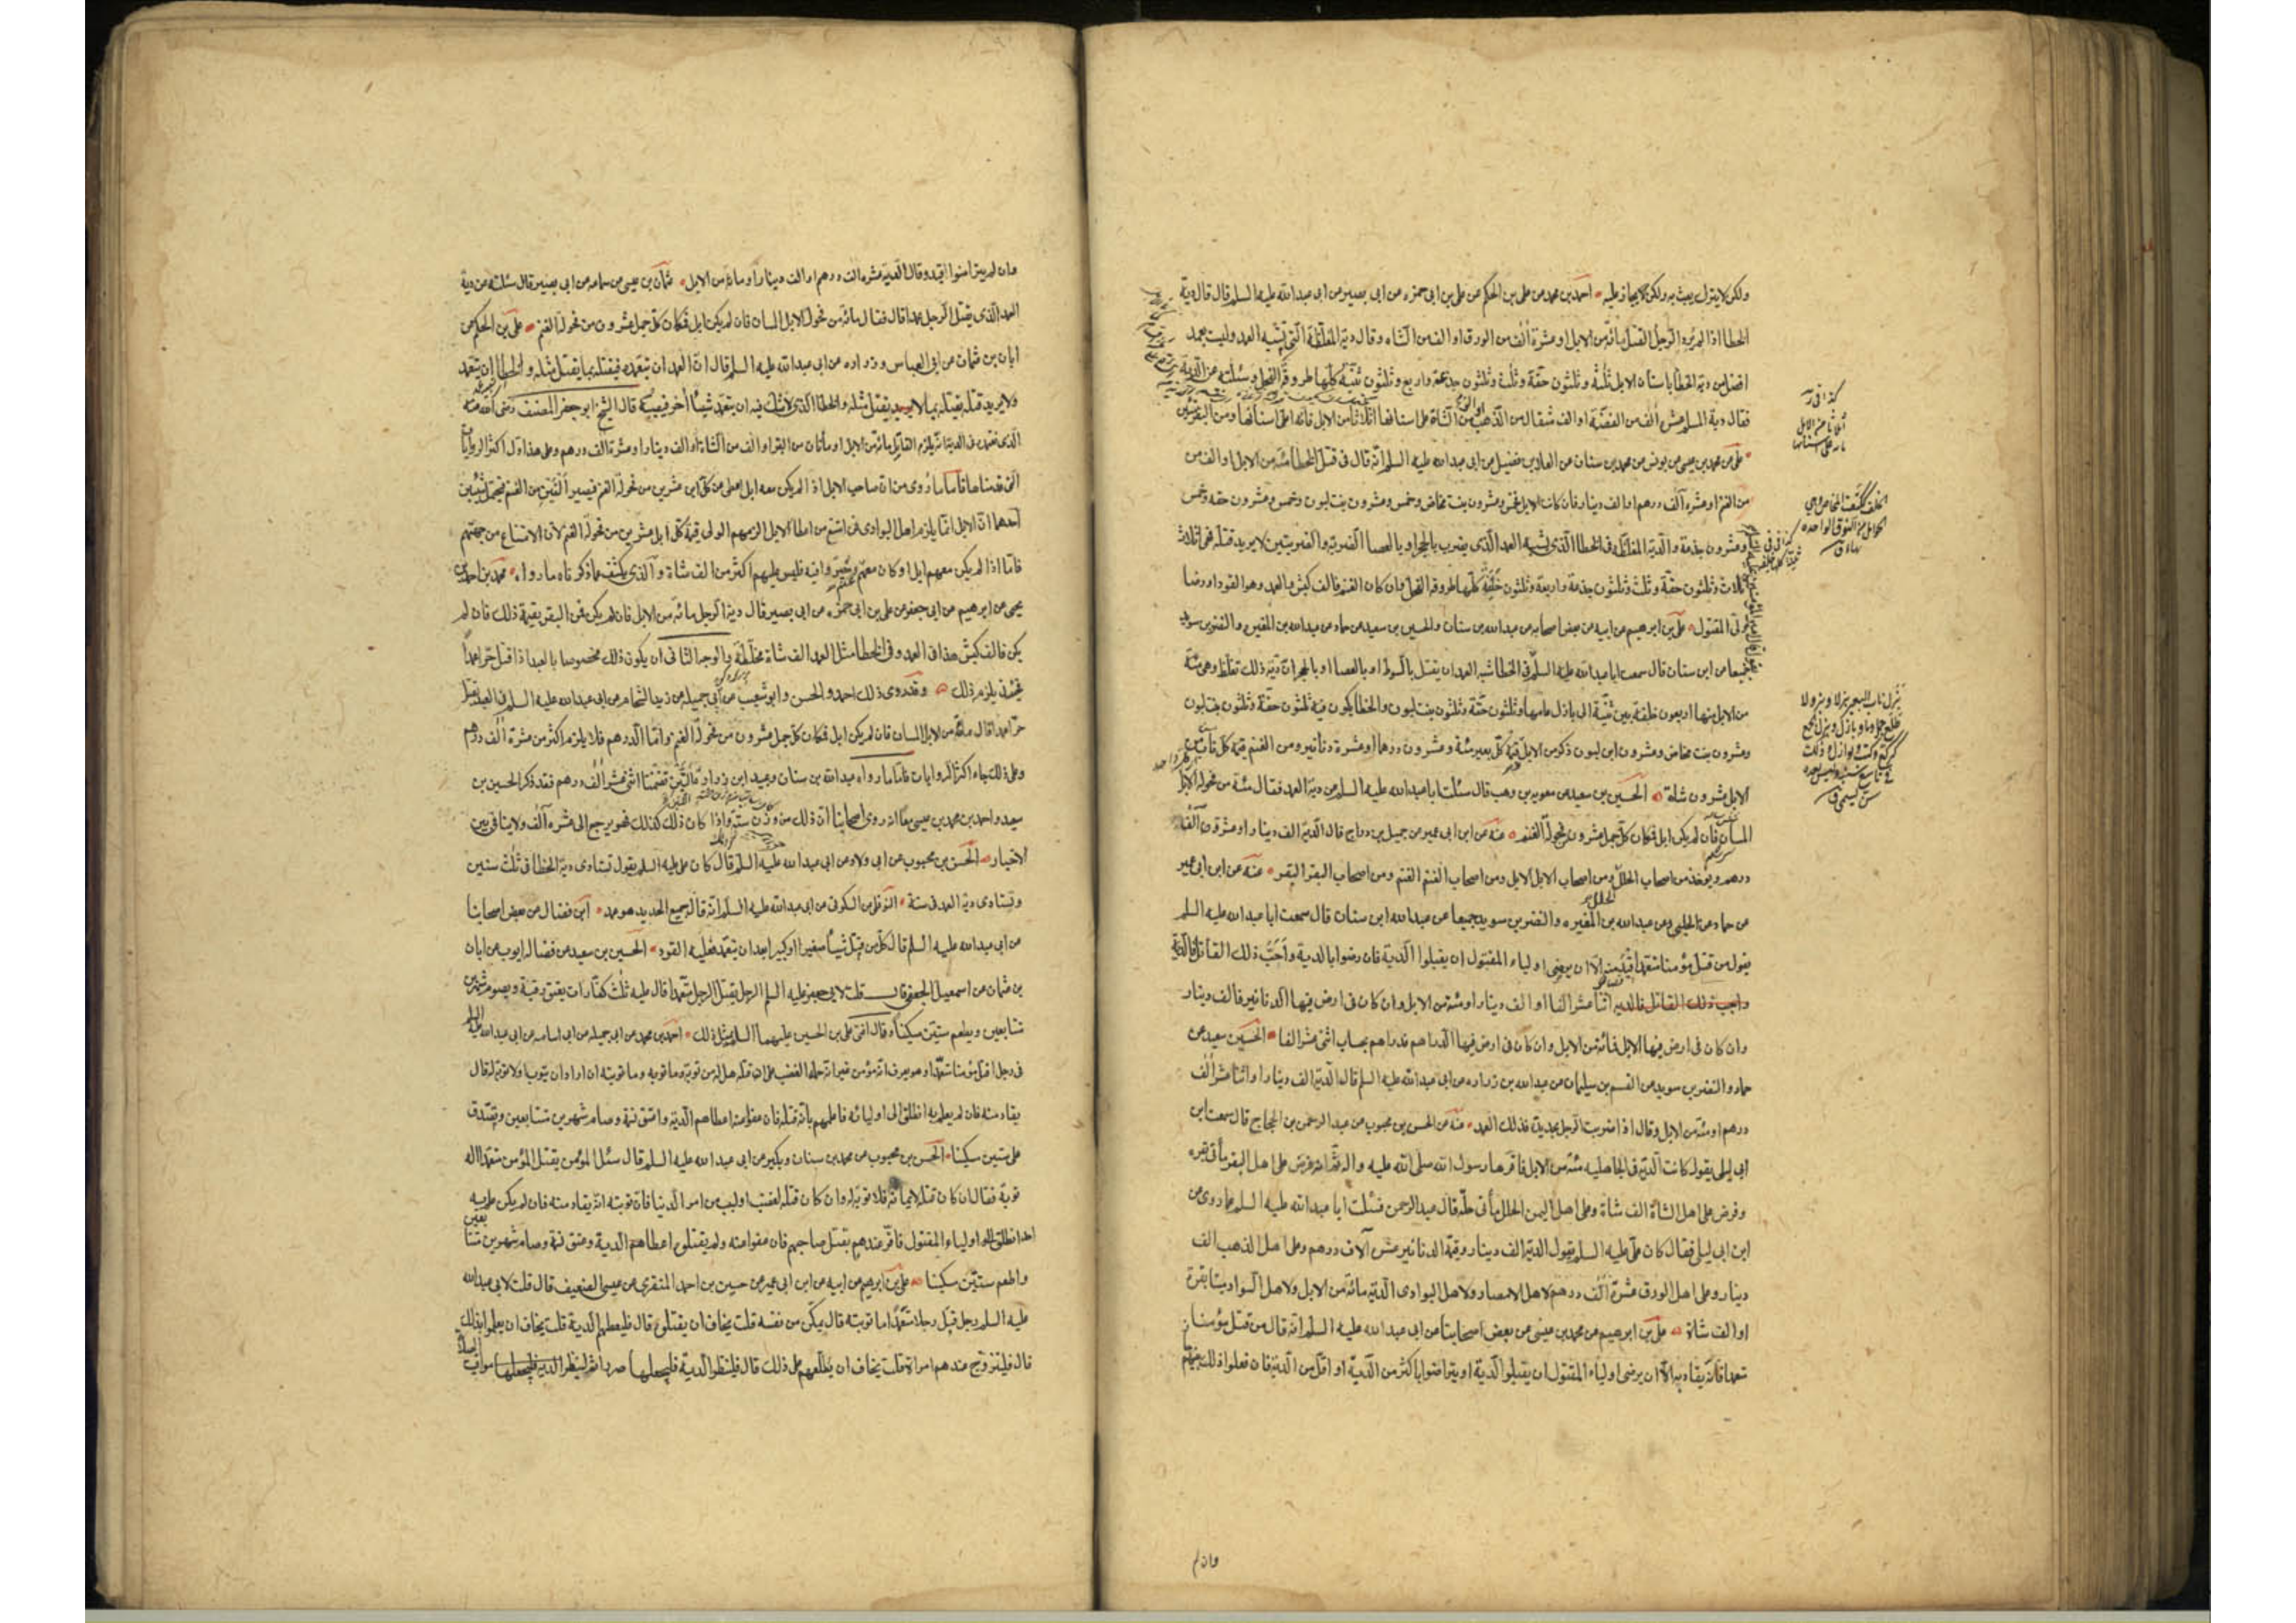 ولكن لا يترك يعبث به ولكن لا يجاز عليه احمد بن محمد عن علي بن الحكم عن علي بن ابي حمزه عن ابي بصير عن ابي عبد الله عليه السلم قال قال دية
الخطا اذا لم يرد الرجل القتل مائة من الابل او عشرة الف من الورق او الف من الشاه وقال دية المغلظة التي تشبه العمد وليست بعمد
افضل من دية الخطا باسنان الابل ثلثة وثلثون حقة وثلثة وثلثون جذعة واربع وثلثون ثنية كلها طروقة الفحل وسئلته عن الدية
فقال دية المسلم عشرة الف من الفضة او الف مثقال من الذهب او الف من الشاة على اسنانها اثلاثا ومن الابل مائة على اسنانها ومن البقر مئتين
علي عن محمد بن عيسى عن يونس عن محمد بن سنان عن العلا بن فضيل عن ابي عبد الله عليه السلم انه قال في قتل الخطا مئة من الابل او الف من
من الغنم او عشره الف درهم او الف دينار فان كانت الابل فخمس وعشرون بنت مخاض وخمس وعشرون بنت لبون وخمس وعشرون حقه وخمس
وعشرون جذعة والدية المغلظة في الخطا الذي يشبه العمد الذي يضرب بالحجر او بالعصا الضربة والضربتين لا يريد قتله فهي اثلاث
ثلاث وثلثون حقة وثلث وثلثون جذعة واربعة وثلثون خلفة كلها طروقة الفحل وان كان الغنم فالف كبش والعمد وهو القود او رضا
ولي المقتول علي بن ابرهيم عن ابيه عن بعض اصحابه عن عبد الله بن سنان والحسين بن سعيد عن حماد عن عبد الله بن المغيره والنضر بن سويد
جميعا عن ابن سنان قال سمعت ابا عبد الله عليه السلم في الخطا شبه العمد ان يقتل بالسوط او بالعصا او بالحجر ان دية ذلك تغلظ وهي مئة
من الابل منها اربعون خلفة بين ثنية الى بازل عامها وثلثون حقة وثلثون بنت لبون والخطا يكون فيه ثلثون حقة وثلثون بنت لبون
وعشرون بنت مخاض وعشرون ابن لبون ذكر من الابل قيمة كل بعير مئة وعشرون درهما او عشرة دنانير ومن الغنم قيمة كل ناب من
الابل عشرون شاة الحسين بن سعيد عن معويه بن وهب قال سئلت ابا عبد الله عليه السلم عن دية العمد فقال مئة من فحولة الابل
المسان فان لم يكن ابل فمكان كل جمل عشرون من فحولة الغنم عنه عن ابن ابي عمير عن جميل بن دراج قال الدية الف دينار او عشرة آلاف
درهم ويوخذ من اصحاب الحلل الحلل ومن اصحاب الابل الابل ومن اصحاب الغنم الغنم ومن اصحاب البقر البقر عنه عن ابن ابي عمير
عن حماد عن الحلبي وعن عبد الله بن المغيره والنضر بن سويد جميعا عن عبد الله ابن سنان قال سمعت ابا عبد الله عليه السلم
يقول من قتل مؤمنا متعمدا قيد منه الا ان يرضى اولياء المقتول ان يقبلوا الدية فان رضوا بالدية واحب ذلك القاتل فالدية
واحب ذلك القاتل فالديه اثنا عشر الفا او الف دينار او مئة من الابل وان كان في ارض فيها الدنانير فالف دينار
وان كان في ارض فيها الابل فمائة من الابل وان كان في ارض فيها الدراهم فدراهم بحساب اثنى عشر الفا الحسين بن سعيد عن
حماد والنضر بن سويد عن القسم بن سليمان عن عبد الله بن زراره عن ابي عبد الله عليه السلم قال الدية الف دينار او اثنا عشر الف
درهم او مئة من الابل وقال اذا ضربت الرجل بحديدة فذلك العمد عنه عن الحسن بن محبوب عن عبد الرحمن بن الحجاج قال سمعت ابن
ابي ليلى يقول كانت الدية في الجاهلية مئة من الابل فاقرها رسول الله صلى الله عليه واله ثم انه فرض على اهل البقر مأتي بقره
وفرض على اهل الشاة الف شاة وعلى اهل اليمن الحلل مأتي حلة قال عبد الرحمن فسئلت ابا عبد الله عليه السلم عما روى عن
ابن ابي ليلى فقال كان علي عليه السلم يقول الدية الف دينار وقيمة الدنانير عشرة آلاف درهم وعلى اهل الذهب الف
دينار وعلى اهل الورق عشرة الف درهم لاهل الامصار ولاهل البوادي الدية مائة من الابل ولاهل السواد مئتا بقرة
او الف شاة علي بن ابرهيم عن محمد بن عيسى عن بعض اصحابنا عن ابي عبد الله عليه السلم انه قال من قتل مؤمنا
متعمدا فانه يقاد به الا ان يرضى اولياء المقتول ان يقبلوا الدية او يتراضوا باكثر من الدية او اقل من الدية فان فعلوا ذلك بينهم
وان لم
وان لم يتراضوا اقيد وقال الدية عشره الف درهم او الف دينار او مائة من الابل عثمان بن عيسى عن سماعه عن ابي بصير قال سئلته عن دية
العمد الذي يقتل الرجل عمدا قال فقال مائة من فحولة الابل المسان فان لم يكن ابل فمكان كل جمل عشرون من فحولة الغنم علي بن الحكم عن
ابان بن عثمان عن ابي العباس وزراره عن ابي عبد الله عليه السلم قال ان العمد ان يتعمده فيقتله بما يقتل مثله والخطا ان يتعمد
ولا يريد قتله يقتله بما لا يقتل مثله والخطا الذي لا شك فيه ان يتعمد شيئا آخر فيصيبه قال الشيخ ابو جعفر المصنف رضى الله عنه
الذي نعتمده في الدية انه يلزم القاتل مائة من الابل او مأتان من البقر او الف من الشاة او الف دينار او عشرة الف درهم وعلى هذا دل اكثر الروايات
التي قدمناها فاما ما روى من ان صاحب الابل اذا لم يكن معه ابل اعطى عن كل ابل عشرين من فحولة الغنم فيصير الفين من الغنم فيحتمل شيئين
احدهما ان الابل انما يلزم اهل البوادي فمن امتنع من اعطا الابل الزمهم الولي قيمة كل ابل عشرين من فحولة الغنم لان الامتناع من جهتهم
فاما اذا لم يكن معهم ابل او كان معهم غنم وخيروا فيه فليس عليهم اكثر من الف شاة والذي يكشف عما ذكرناه ما رواه محمد بن احمد بن
يحيى عن ابرهيم عن ابي جعفر عن علي بن ابي حمزه عن ابي بصير قال دية الرجل مائة من الابل فان لم يكن فمن البقر بقيمة ذلك فان لم
يكن فالف كبش هذا في العمد وفي الخطا مثل العمد الف شاة مخلطة والوجه الثاني ان يكون ذلك مخصوصا بالعبد اذا قتل حرا عمدا
فحينئذ يلزمه ذلك وقد روى ذلك احمد والحسن وابو شعيب عن ابي جميله عن زيد الشحام عن ابي عبد الله عليه السلم في العبد يقتل
حرا عمدا قال مائة من الابل المسان فان لم يكن ابل فمكان كل جمل عشرون من فحولة الغنم واما الدرهم فلا يلزم اكثر من عشرة الف درهم
وعلى ذلك جاء اكثر الروايات فاما ما رواه عبد الله بن سنان وعبيد ابن زراره اللتين تضمنتا اثنى عشر الف درهم فقد ذكر الحسين بن
سعيد واحمد بن محمد بن عيسى معا انه روى اصحابنا ان ذلك من وزن ستة واذا كان ذلك كذلك فهو يرجع الى عشره آلف ولا ينافي بين
الاخبار الحسن بن محبوب عن ابي ولاد عن ابي عبد الله عليه السلم قال كان علي عليه السلم يقول تستادى دية الخطا في ثلث سنين
وتستادى دية العمد في سنة النوفلي عن السكوني عن ابي عبد الله عليه السلم انه قال جميع الحديد هو عمد ابن فضال عن بعض اصحابنا
عن ابي عبد الله عليه السلم قال كل من قتل شيئا صغيرا او كبيرا بعد ان يتعمد فعليه القود الحسين بن سعيد عن فضاله ايوب عن ابان
بن عثمان عن اسمعيل الجعفي قال قلت لابي جعفر عليه السلم الرجل يقتل الرجل متعمدا قال عليه ثلث كفارات يعتق رقبة ويصوم شهرين
متتابعين ويطعم ستين مسكينا وقال افتى علي بن الحسين عليهما السلم بمثل ذلك احمد بن محمد عن ابي جميله عن ابي اسامه عن ابي عبد الله عليه السلم
في رجل قتل مؤمنا متعمدا وهو يعرف انه مؤمن غير انه حمله الغضب على ان قتله هل له من توبة وما توبته ان اراد ان يتوب او لا توبة له قال
يقاد منه فان لم يعلم به انطلق الى اوليائه فاعلمهم بانه قتله فان عفوا عنه اعطاهم الدية واعتق نسمة وصام شهرين متتابعين وتصدق
على ستين مسكينا الحسن بن محبوب عن محمد بن سنان وبكير عن ابي عبد الله عليه السلم قال سئل المؤمن يقتل المؤمن متعمدا اله
توبة فقال ان كان قتله لايمانه فلا توبة له وان كان قتله لغضب او لسبب من امر الدنيا فان توبته انه يقاد منه فان لم يكن علم به
احد انطلق الى اولياء المقتول فاقر عندهم بقتل صاحبهم فان عفوا عنه ولم يقتلوه اعطاهم الدية وعتق نسمة وصام شهرين متتابعين
واطعم ستين مسكينا علي بن ابرهيم عن ابيه عن ابن ابي عمير عن حسين بن احمد المنقري عن عيسى الضعيف قال قلت لابي عبد الله
عليه السلم رجل قتل رجلا متعمدا ما توبته قال يمكن من نفسه قلت يخاف ان يقتلوه قال فليعطهم الدية قلت يخاف ان يعلموا بذلك
قال فليتزوج عندهم امراة قلت يخاف ان يطلعهم على ذلك قال فلينظر الدية فليجعلها صررا ثم لينظر مواقيت الصلاة